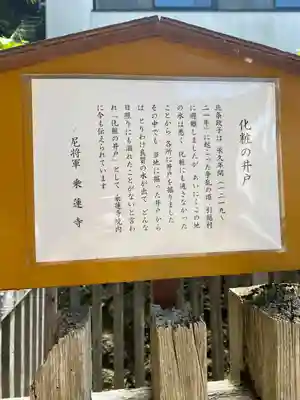 化粧の井戸
北条政子は 承久年間(一二一九、
二一年)に起こった争乱の頃 引越村
に避難しましたが あいにくこの地
の水は悪く 化粧にも適さなかった
ことから 各所に井戸を掘りました
その中でも 当地に掘った井戸から
は とりわけ良質の水が出て どんな
日照りにも涸れたことがないと言わ
れ「化粧の井戸」として 乗蓮寺院内
に今も伝えられています
尼将軍 乗蓮寺